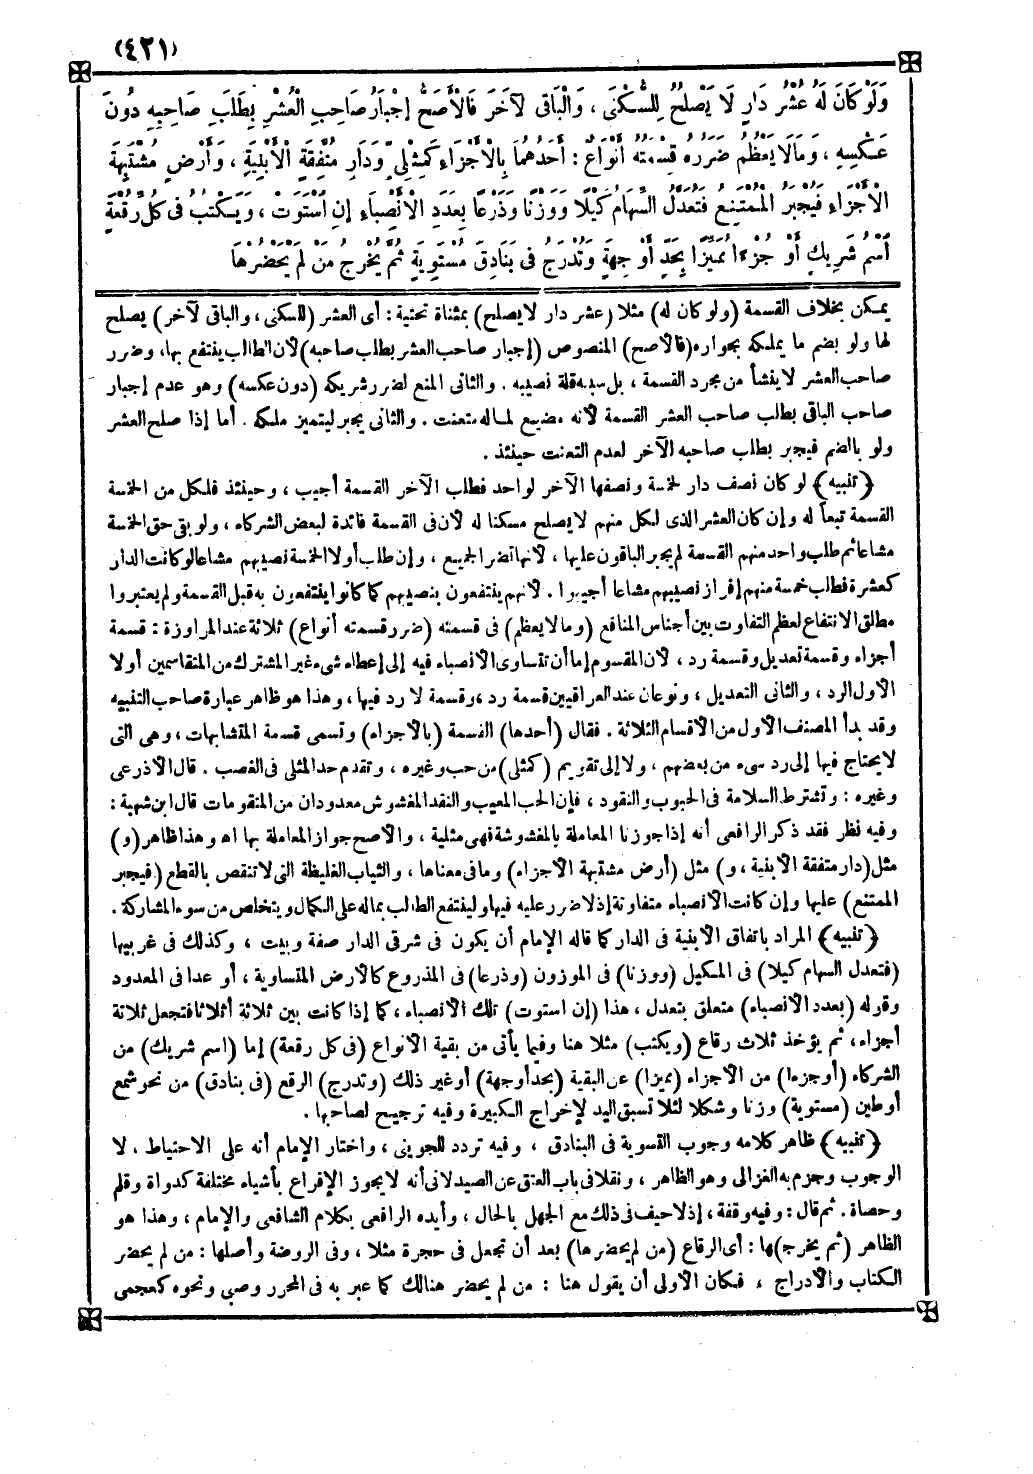 (٤٢١)
وَلَوْ كَانَ لَهُ عُشْرُ دَارٍ لَا يَصْلُحُ لِلسُّكْنَى ، وَالْبَاقِى لآخَرَ فَالْأَصَحُّ إِجْبَارُ صَاحِبِ الْعُشْرِ بِطَلَبِ صَاحِبِهِ دُونَ
عَكْسِهِ ، وَمَالَا يَعْظُمُ ضَرَرُهُ قِسْمَتُهُ أَنْوَاعٌ : أَحَدُهُمَا بِالْأَجْزَاءِ كَمِثْلِىٍّ وَدَارٍ مُتَّفِقَةِ الْأَبْنِيَةِ ، وَأَرْضٍ مُشْتَبِهَةِ
الْأَجْزَاءِ فَيُجْبَرُ الْمُمْتَنِعُ فَتُعَدَّلُ السِّهَامُ كَيْلًا وَوَزْنًا وَذَرْعًا بِعَدَدِ الْأَنْصِبَاءِ إِنِ اسْتَوَتْ ، وَيَكْتُبُ فِى كُلِّ رُقْعَةٍ
اسْمُ شَرِيكٍ أَوْ جُزْءًا مُمَيَّزًا بِحَدٍّ أَوْ جِهَةٍ وَتُدْرَجُ فِى بَنَادِقَ مُسْتَوِيَةٍ ثُمَّ يُخْرِجُ مَنْ لَمْ يَحْضُرْهَا
يمكن بخلاف القسمة (ولو كان له) مثلا (عشر دار لا يصلح) بمثناة تحتية : أى العشر (للسكنى ، والباقى لآخر) يصلح
لها ولو بضم ما يملكه بجواره (فالأصح) المنصوص (إجبار صاحب العشر بطلب صاحبه) لأن الطالب ينتفع بها ، وضرر
صاحب العشر لا ينشأ من مجرد القسمة ، بل سببه قلة نصيبه . والثانى المنع لضرر شريكه (دون عكسه) وهو عدم إجبار
صاحب الباقى بطلب صاحب العشر القسمة لأنه مضييع لماله متعنت . والثانى يجبر ليتميز ملكه . أما إذا صلح العشر
ولو بالضم فيجبر بطلب صاحبه الآخر لعدم التعنت حينئذ .
﴿تنبيه﴾ لو كان نصف دار لخمسة ونصفها الآخر لواحد فطلب الآخر القسمة أجيب ، وحينئذ فلكل من الخمسة
القسمة تبعا له وإن كان العشر الذى لكل منهم لا يصلح مسكنا له لأن فى القسمة فائدة لبعض الشركاء ، ولو بقى حق الخمسة
مشاعا ثم طلب واحد منهم القسمة لم يجبر الباقون عليها ، لأنها تضر الجميع ، وإن طلب أولا الخمسة نصيبهم مشاعا لو كانت الدار
كعشرة فطلب خمسة منهم إفراز نصيبهم مشاعا أجيبوا . لأنهم ينتفعون بنصيبهم كما كانوا ينتفعون به قبل القسمة ولم يعتبروا
مطلق الانتفاع لعظم التفاوت بين أجناس المنافع (وما لا يعظم) فى قسمته (ضرر قسمته أنواع) ثلاثة عند المراوزة : قسمة
أجزاء وقسمة تعديل وقسمة رد ، لأن المقسوم إما أن تتساوى الأنصباء فيه إلى إعطاء شىء غير المشترك من المتقاسمين أولا
الأول الرد ، والثانى التعديل ، ونوعان عند العراقيين قسمة رد ، وقسمة لا رد فيها ، وهذا هو ظاهر عبارة صاحب التنبيه
وقد بدأ المصنف الأول من الأقسام الثلاثة . فقال (أحدها) القسمة (بالأجزاء) وتسمى قسمة المتشابهات ، وهى التى
لا يحتاج فيها إلى رد سىء من بعضهم ، ولا إلى تقويم (كمثلى) من حب وغيره ، وتقدم حد المثلى فى الغصب . قال الأذرعى
وغيره : وتشترط السلامة فى الحبوب والنقود ، فإن الحب المعيب والنقد المغشوش معدودان من المتقومات قال ابن شهبة :
وفيه نظر فقد ذكر الرافعى أنه إذا جوزنا المعاملة بالمغشوشة فهى مثلية ، والأصح جواز المعاملة بها اه وهذا ظاهر (و)
مثل (دار متفقة الأبنية ، و) مثل (أرض مشتبهة الأجزاء) وما فى معناها ، والثياب الغليظة التى لا تنقص بالقطع (فيجبر
الممتنع) عليها وإن كانت الأنصباء متفاوتة إذ لا ضرر عليه فيها ولينتفع الطالب بماله على الكمال ويتخلص من سوء المشاركة .
﴿تنبيه﴾ المراد باتفاق الأبنية فى الدار كما قاله الإمام أن يكون فى شرقى الدار صفة وبيت ، وكذلك فى غربيها
(فتعدل السهام كيلا) فى المكيل (ووزنا) فى الموزون (وذرعا) فى المذروع كالأرض المتساوية ، أو عدا فى المعدود
وقوله (بعدد الأنصباء) متعلق بتعدل ، هذا (إن استوت) تلك الأنصباء ، كما إذا كانت بين ثلاثة أثلاثا فتجعل ثلاثة
أجزاء ، ثم يؤخذ ثلاث رقاع (ويكتب) مثلا هنا وفيما يأتى من بقية الأنواع (فى كل رقعة) إما (اسم شريك) من
الشركاء (أو جزءا) من الأجزاء (مميزا) عن البقية (بحد أو جهة) أو غير ذلك (وتدرج) الرقع (فى بنادق) من نحو شمع
أو طين (مستوية) وزنا وشكلا لئلا تسبق اليد لإخراج الكبيرة وفيه ترجيح لصاحبها .
﴿تنبيه﴾ ظاهر كلامه وجوب التسوية فى البنادق ، وفيه تردد للجوينى ، واختار الإمام أنه على الاحتياط ، لا
الوجوب وجزم به الغزالى وهو الظاهر ، ونقلا فى باب العتق عن الصيدلانى أنه لا يجوز الإقراع بأشياء مختلفة كدواة وقلم
وحصاة . ثم قال : وفيه وقفة ، إذ لا حيف فى ذلك مع الجهل بالحال ، وأيده الرافعى بكلام الشافعى والإمام ، وهذا هو
الظاهر (ثم يخرج) ها : أى الرقاع (من لم يحضرها) بعد أن تجعل فى حجرة مثلا ، وفى الروضة وأصلها : من لم يحضر
الكتاب والأدراج ، فكان الأولى أن يقول هنا : من لم يحضر هنالك كما عبر به فى المحرر وصبى ونحوه كعجمى